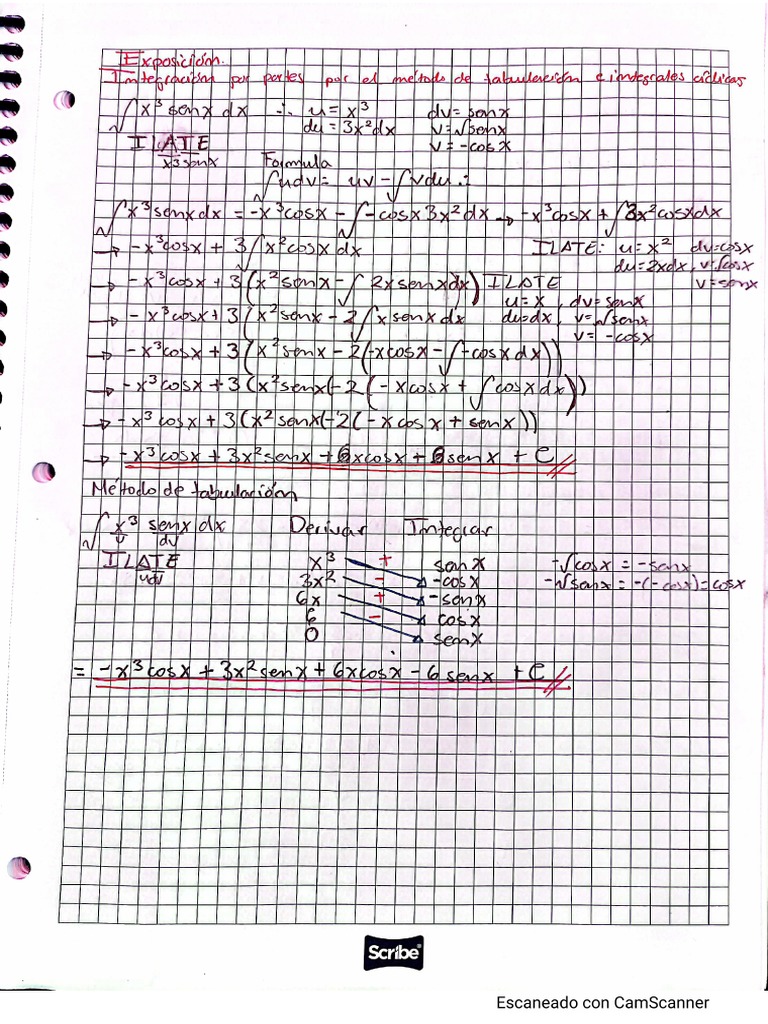 Exposición.
Integración por partes por el método de tabulación e integrales cíclicas
∫x³senxdx ∴ u=x³ dv=senx
du=3x²dx v=∫senx
ILATE v=-cosx
x³senx Formula
∫udv= uv-∫vdu∴
∫x³senxdx = -x³cosx-∫-cosx3x²dx → -x³cosx+∫3x²cosxdx
→ -x³cosx+3∫x²cosxdx ILATE: u=x² dv=cosx
du=2xdx, v=∫cosx
→ -x³cosx+3(x²senx-∫2xsenxdx) ILATE v=senx
u=x, dv=senx
→ -x³cosx+3(x²senx-2∫xsenxdx du=dx, v=∫senx
v=-cosx
→ -x³cosx+3(x²senx-2(-xcosx-∫-cosxdx))
→ -x³cosx+3(x²senx(-2(-xcosx+∫cosxdx))
→ -x³cosx+3(x²senx(-2(-xcosx+senx))
→ -x³cosx+3x²senx+6xcosx+6senx+C
Método de tabulación
∫x³senxdx Derivar Integrar
v dv
ILATE x³ + senx -∫cosx=-senx
udv 3x² - -cosx -∫senx=-(-cosx)=cosx
6x + -senx
6 - cosx
0 senx
= -x³cosx+3x²senx+6xcosx-6senx+C
Scribe®
Escaneado con CamScanner